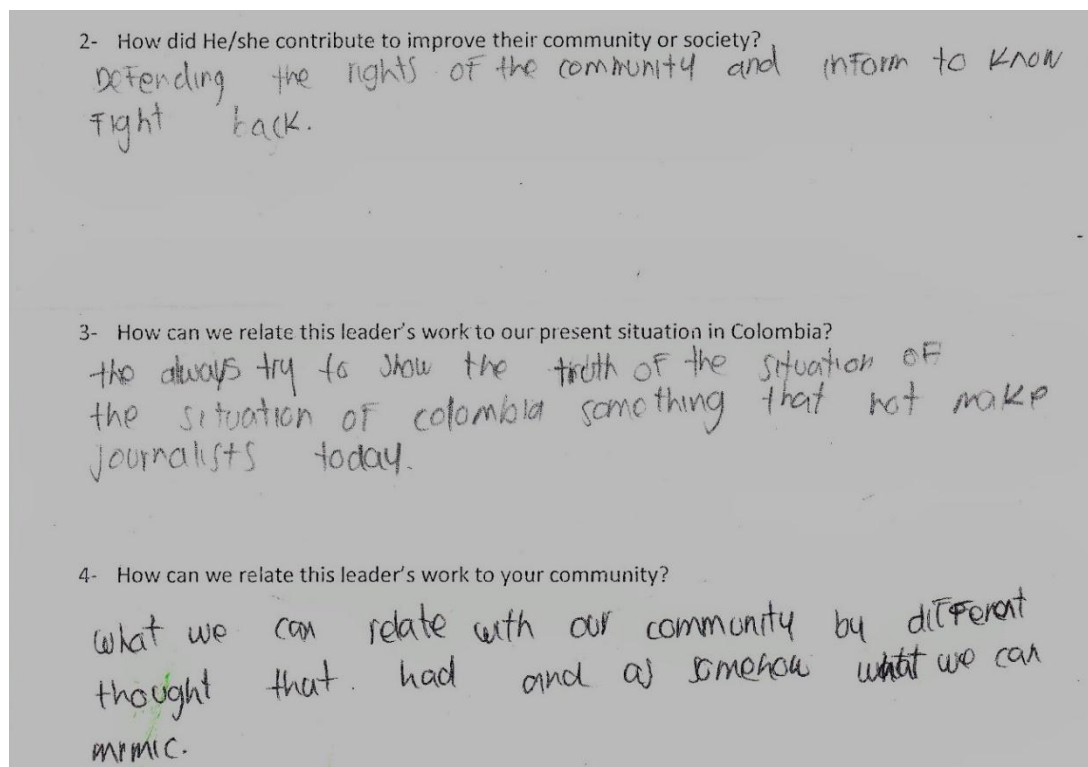 2- How did He/she contribute to improve their community or society?
Defending the rights of the community and inform to know
Fight back.
3- How can we relate this leader's work to our present situation in Colombia?
the always try to show the truth of the situation of
the situation of colombia something that not make
journalists today.
4- How can we relate this leader's work to your community?
what we can relate with our community by different
thought that. had and as somehow what we can
mimic.